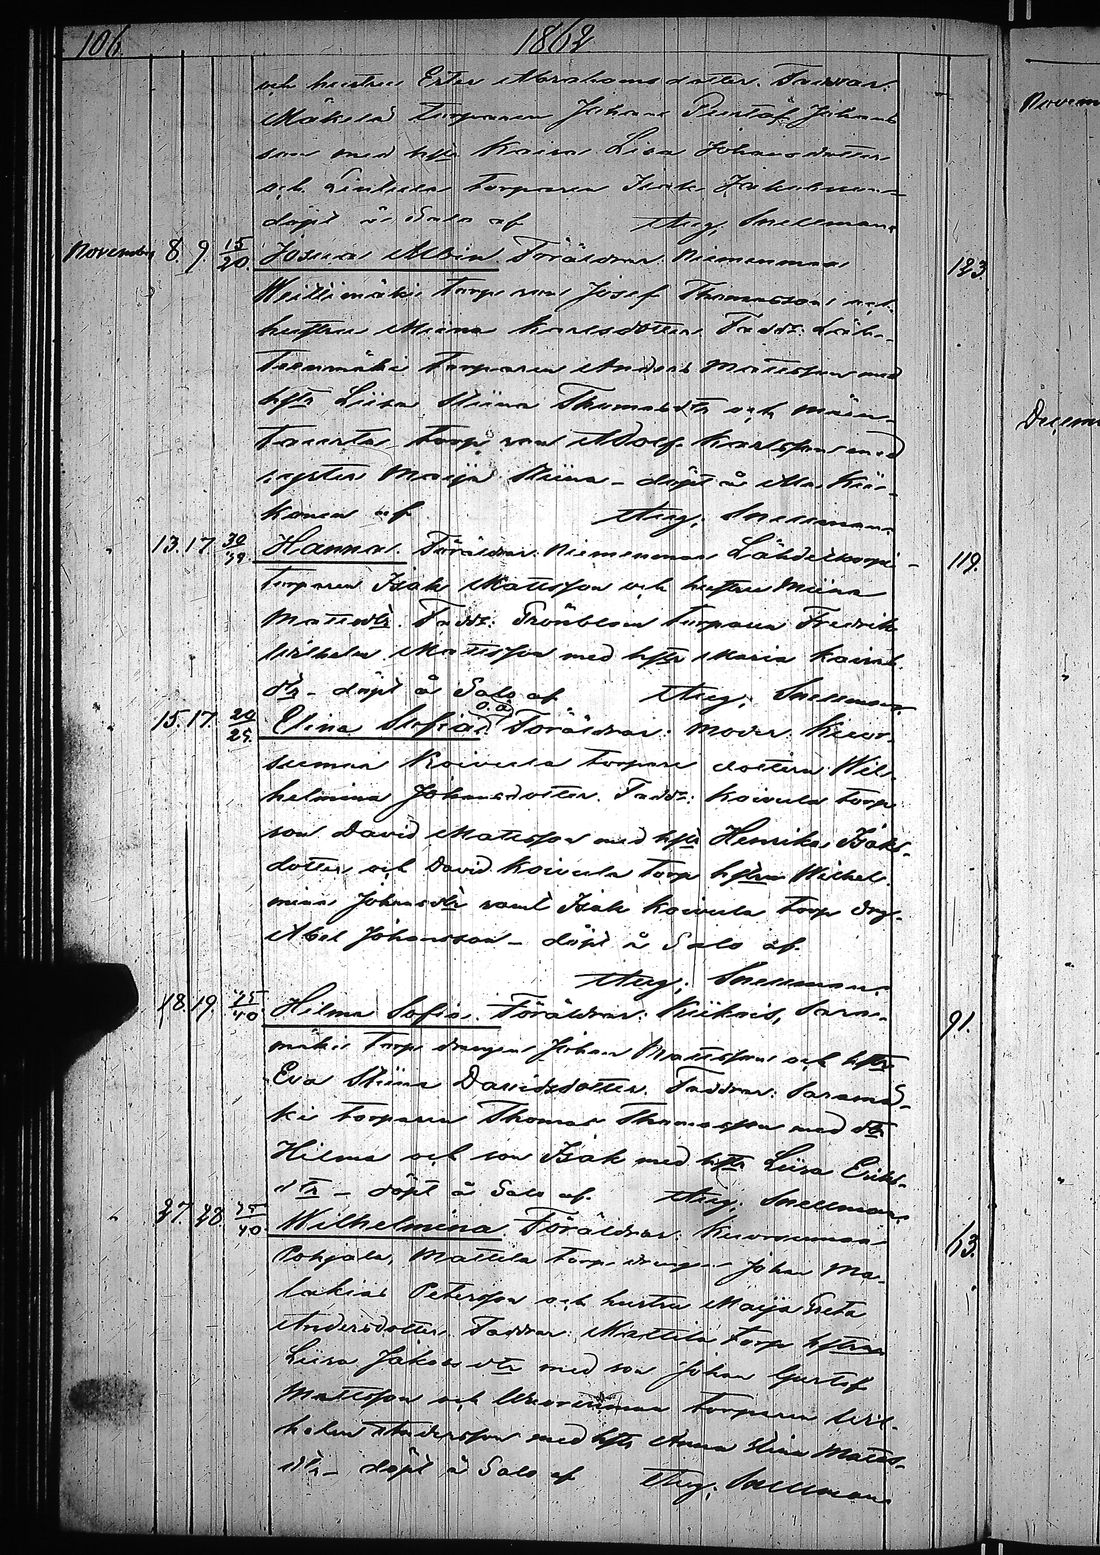 106. 1862
och hustru Ester Abrahamsdotter. Faddrar:
Mäkelä torparen Johan Gustaf Johans
son med hstr Kaisa Lisa Johansdotter
och torparen Isak
döpt å Salo af Aug. Snellman.
November 8. 9. 15/20 Josua Albin Föräldrar: Niemenmaa 123.
torp son Josef Thomasson och
hustru Miina Karlsdotter. Faddr: Läh-
teenmäki torparen Anders Mattsson med
hstr Liisa Stiina Thomasdtr och
torp son Adolf Karlsson med
syster Maija Stiina – döpt å
af Aug. Snellman.
13. 17. Hanna. Föräldrar: Niemenmaa Lähdekorpi 119.
torparen Isak Mattsson och hustru Miina
Mattsdtr. Faddr: Grönblom torparen Fredrik
Wilhelm Mattsson med hstr Maria
dtr – döpt å Salo af Aug. Snellman.
15. 17. 20/25. Elina Sofia o.ä. Föräldrar: Moder:
Koivula torpare dottern Wil-
helmina Johansdotter. Faddr: Koivula torp
son David Mattsson med hstr Henrika Isaks-
dotter och David Koivula torp hstrn Wilhel-
mina Johansdtr samt Isak Koivula torp drg.
Abel Johansson – döpt å Salo af.
Aug. Snellman.
18. 19. 35/40 Hilma Sofia. Föräldrar: Kiikois, Sara- 91.
mäki torp drengen Johan Mattsson och hstr
Eva Stiina Davidsdotter. Faddrar: Saramä-
ki torparen Thomas Thomasson med dtr
Hilma och son Isak med hstr Liisa Eriks-
dtr – döpt å Salo af. Aug. Snellman.
27. 28. 35/40 Wilhelmina. Föräldrar: 63.
Pohjala, Mattila torp drengen Johan Ma-
lakias Petersson och hustru Maija Greta
Andersdotter. Faddrar: Mattila torp hstrn
Liisa Jakobsdtr med son Johan Gustaf
Mattsson och torparen Wil-
helm Andersson med hstr Anna Stina Matts-
dtr – döpt å Salo af Aug. Snellman.
Novem
Decem